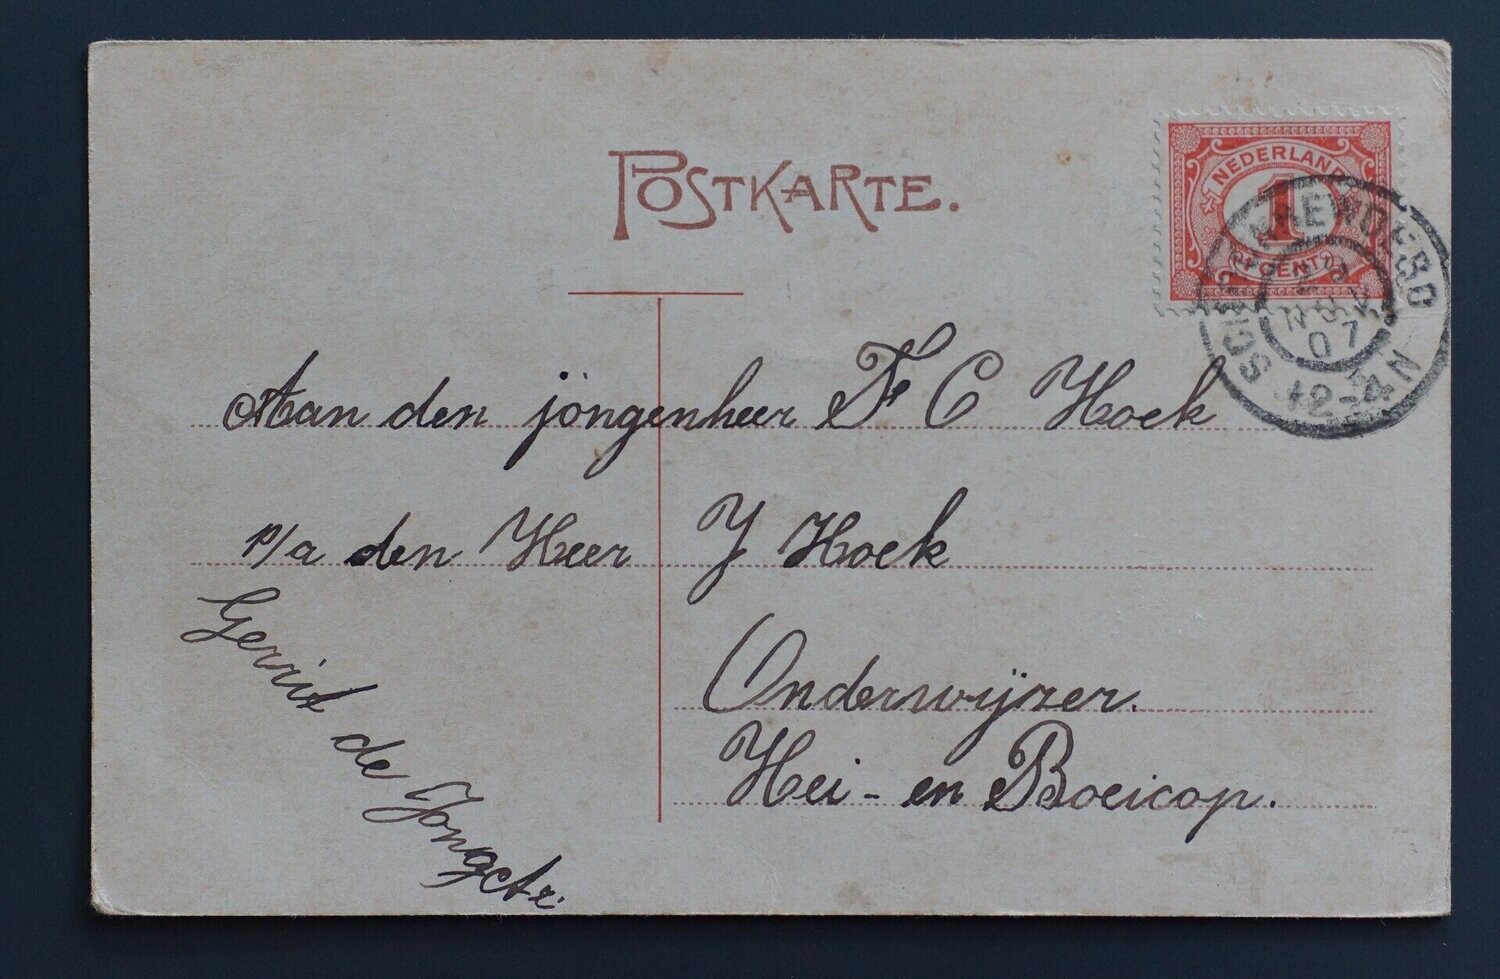 POSTKARTE.
NEDERLAND
1
CENT
NOV
07
12-4N
Aan den jongenheer F C Hoek
p/a den Heer J Hoek
Onderwijzer.
Hei- en Boeicop.
Gerrit de Jong